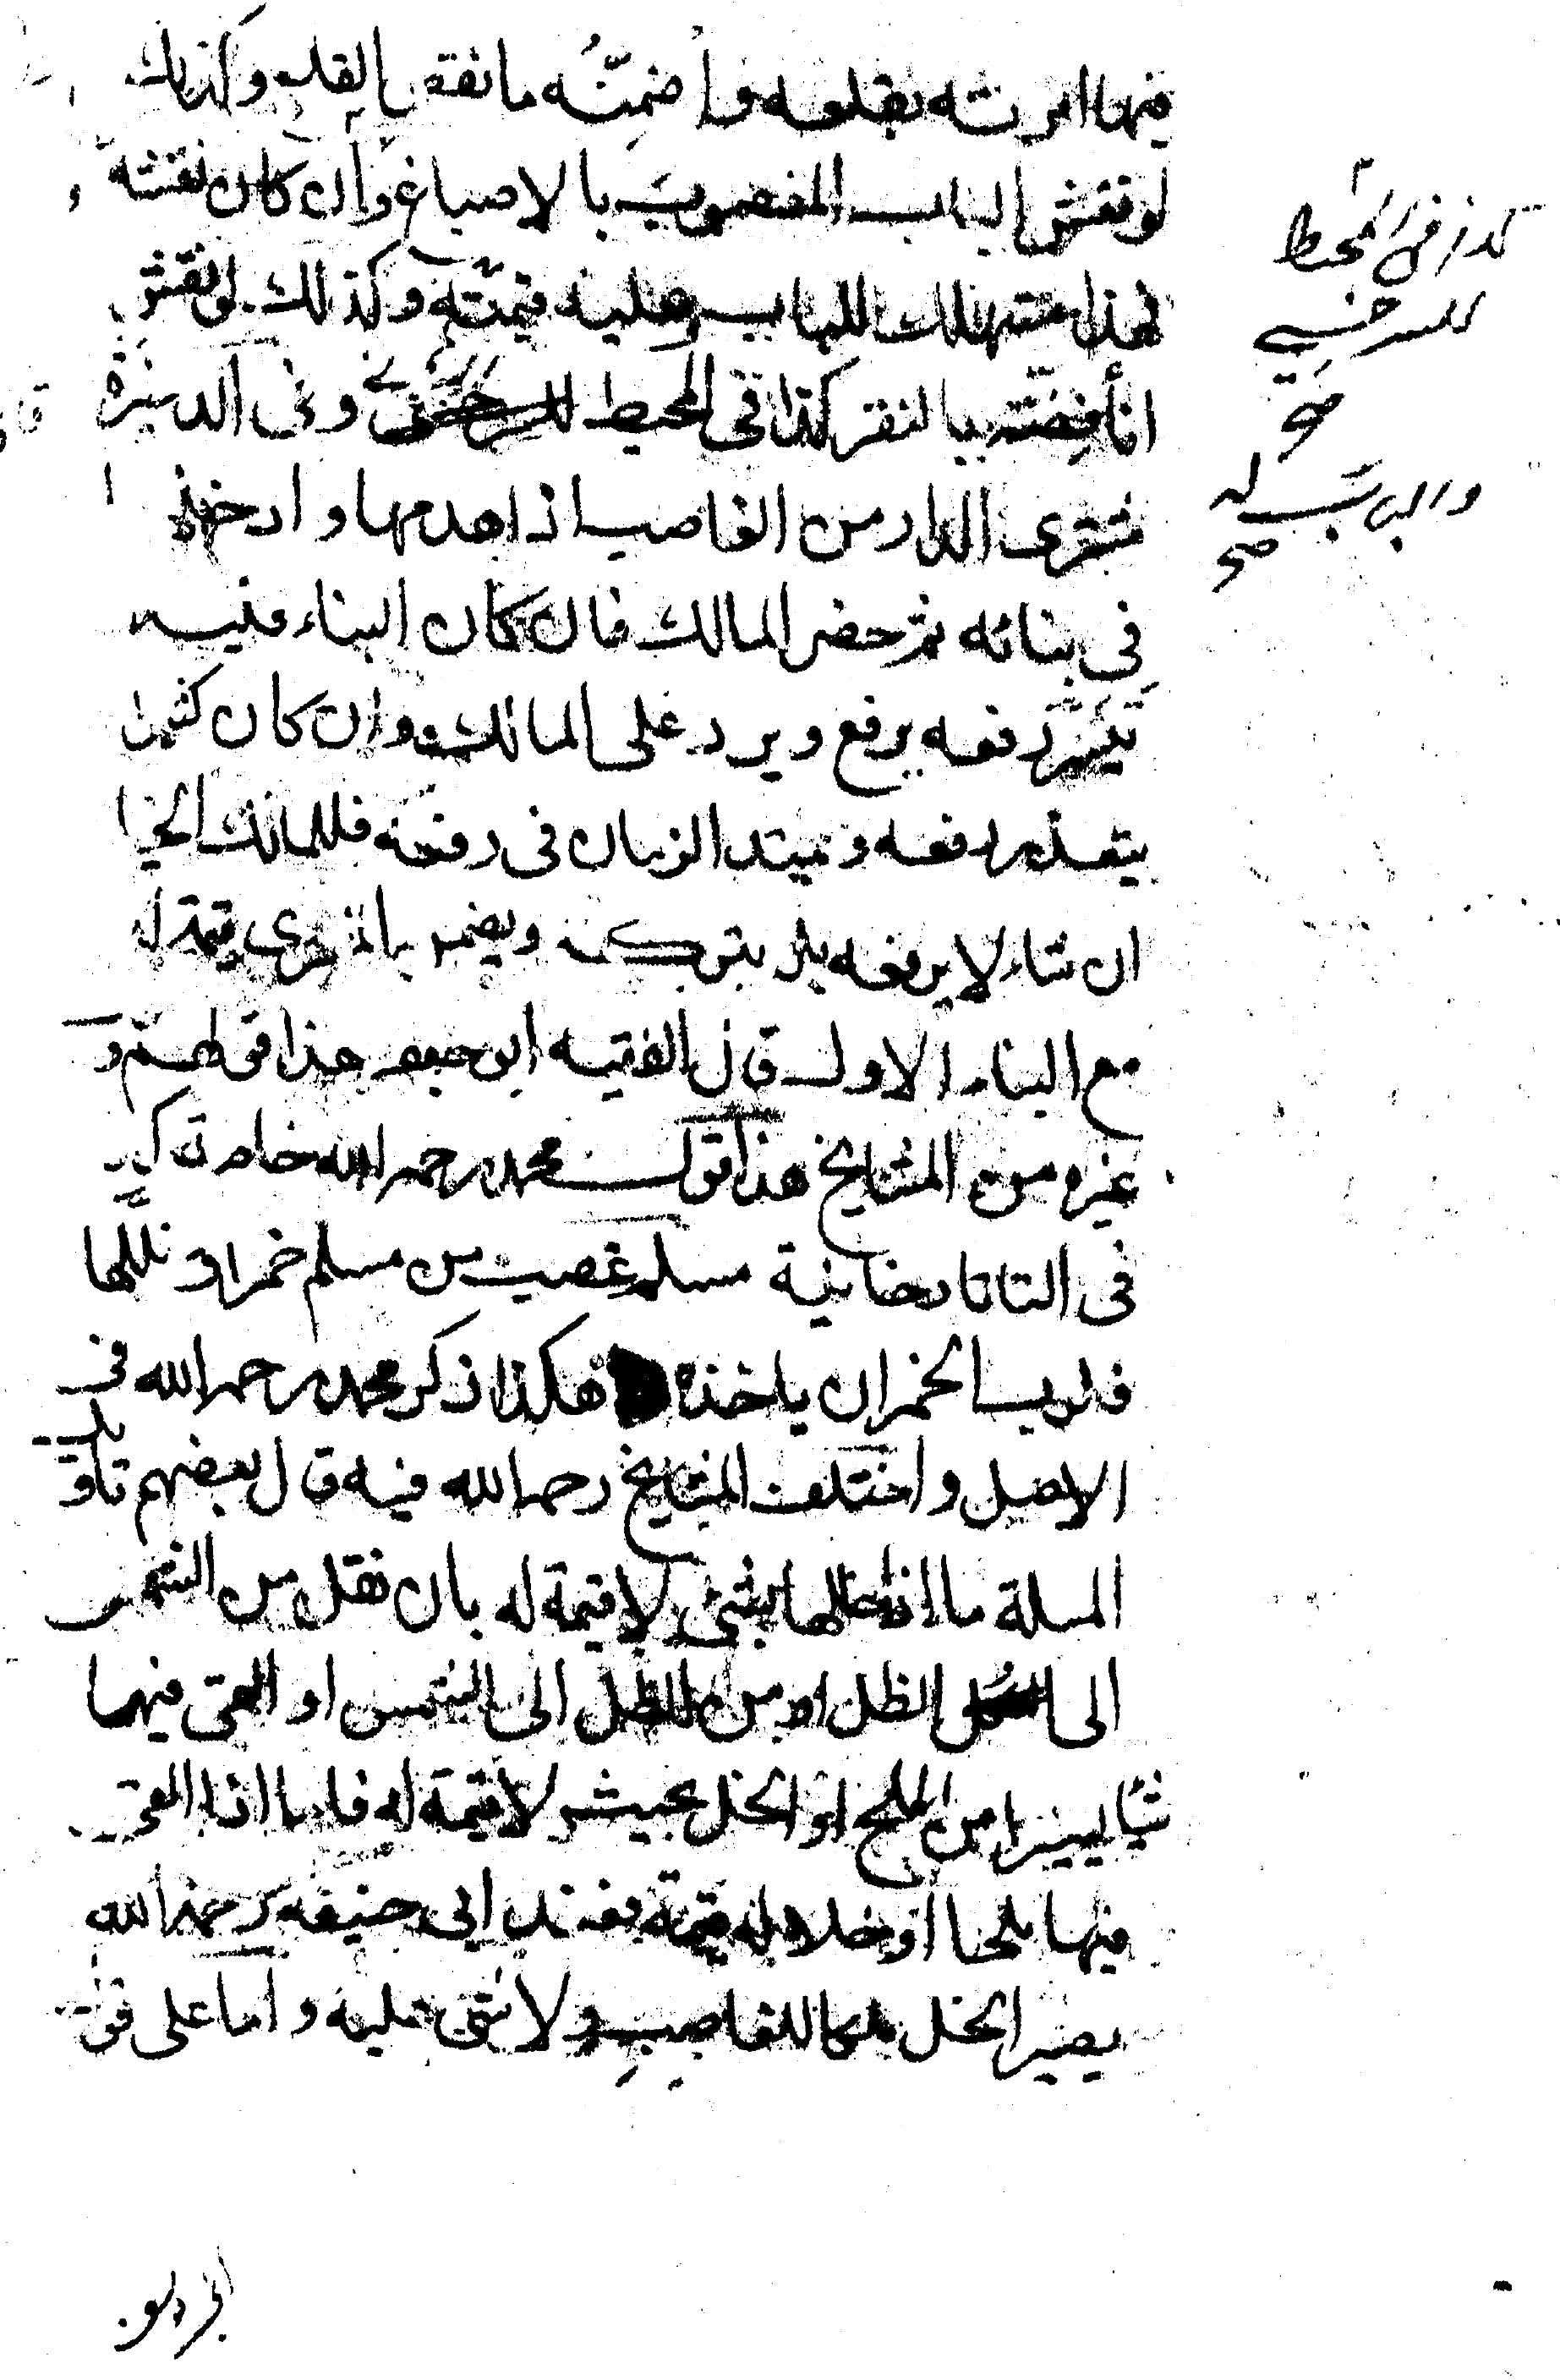 فيها امرته بقلعه واضمنه ما نقص بالقلع وكذلك
لو نقش الباب المغصوب بالاصباغ وان كان نقشه
فهذا مستهلك للباب وعليه قيمته وكذلك لو نقش
انا فضة بالنقر كذا فى المحيط للسرخسى وفى الذخيرة
مشترى الدار من الغاصب اذا هدمها وادخلها
فى بنائه ثم حضر المالك فان كان البناء قليلا
تيسر رفعه يرفع ويرد على المالك وان كان كثيرا
يتعذر رفعه ويمتد الزمان فى رفعه فللمالك الخيار
ان شاء لا يرفعه بل يتركه ويضمن المشترى قيمة
مع البناء الاول قال الفقيه ابو جعفر هذا قولهم و
غيره من المشايخ هذا قول محمد رحمه الله خاصة كذا
فى التاتارخانية مسلم غصب من مسلم خمرا فخللها
فلرب الخمر ان ياخذه هكذا ذكر محمد رحمه الله فى
الاصل واختلف المشايخ رحمه الله فيه قال بعضهم تاويل
المسلة ما اذا خللها بشئ لا قيمة له بان نقل من الشمس
الى الظل او من الظل الى الشمس او القى فيها
شيا يسيرا من الملح او الخل بحيث لا قيمة له فاما اذا القى
فيها ملحا او خلا له قيمة فعند ابى حنيفه رحمه الله
يصير الخل ملكا للغاصب ولا شئ عليه واما على قول
كذا فى المحيط
للسرخسى
صح